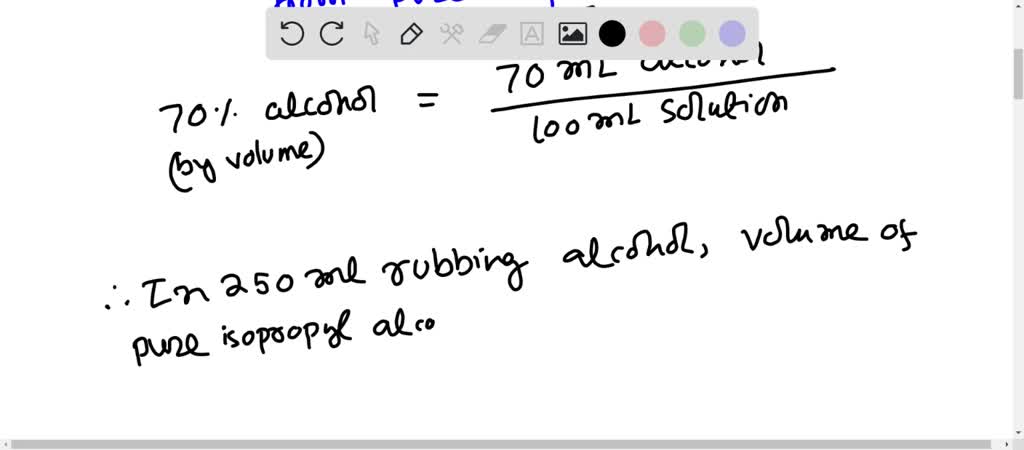 70% alcohol = 70 mL
100 mL solution
(by volume)
∴ In 250 ml rubbing alcohol, volume of
pure isopropyl alco